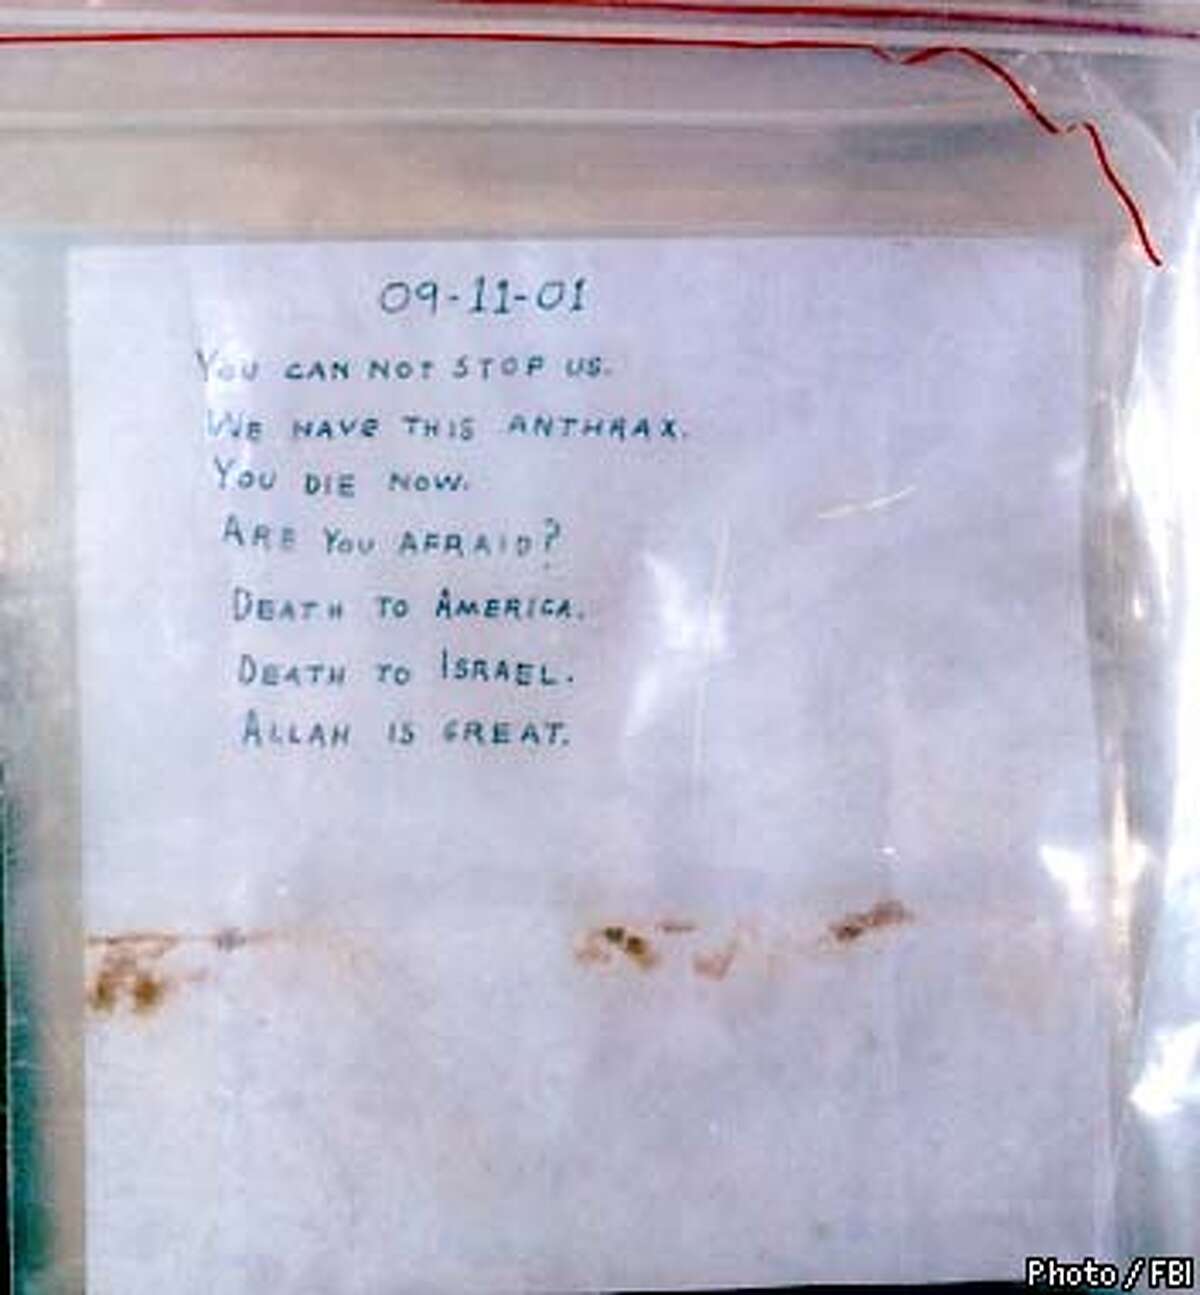 09-11-01
YOU CAN NOT STOP US.
WE HAVE THIS ANTHRAX.
YOU DIE NOW.
ARE YOU AFRAID?
DEATH TO AMERICA.
DEATH TO ISRAEL.
ALLAH IS GREAT.
Photo / FBI